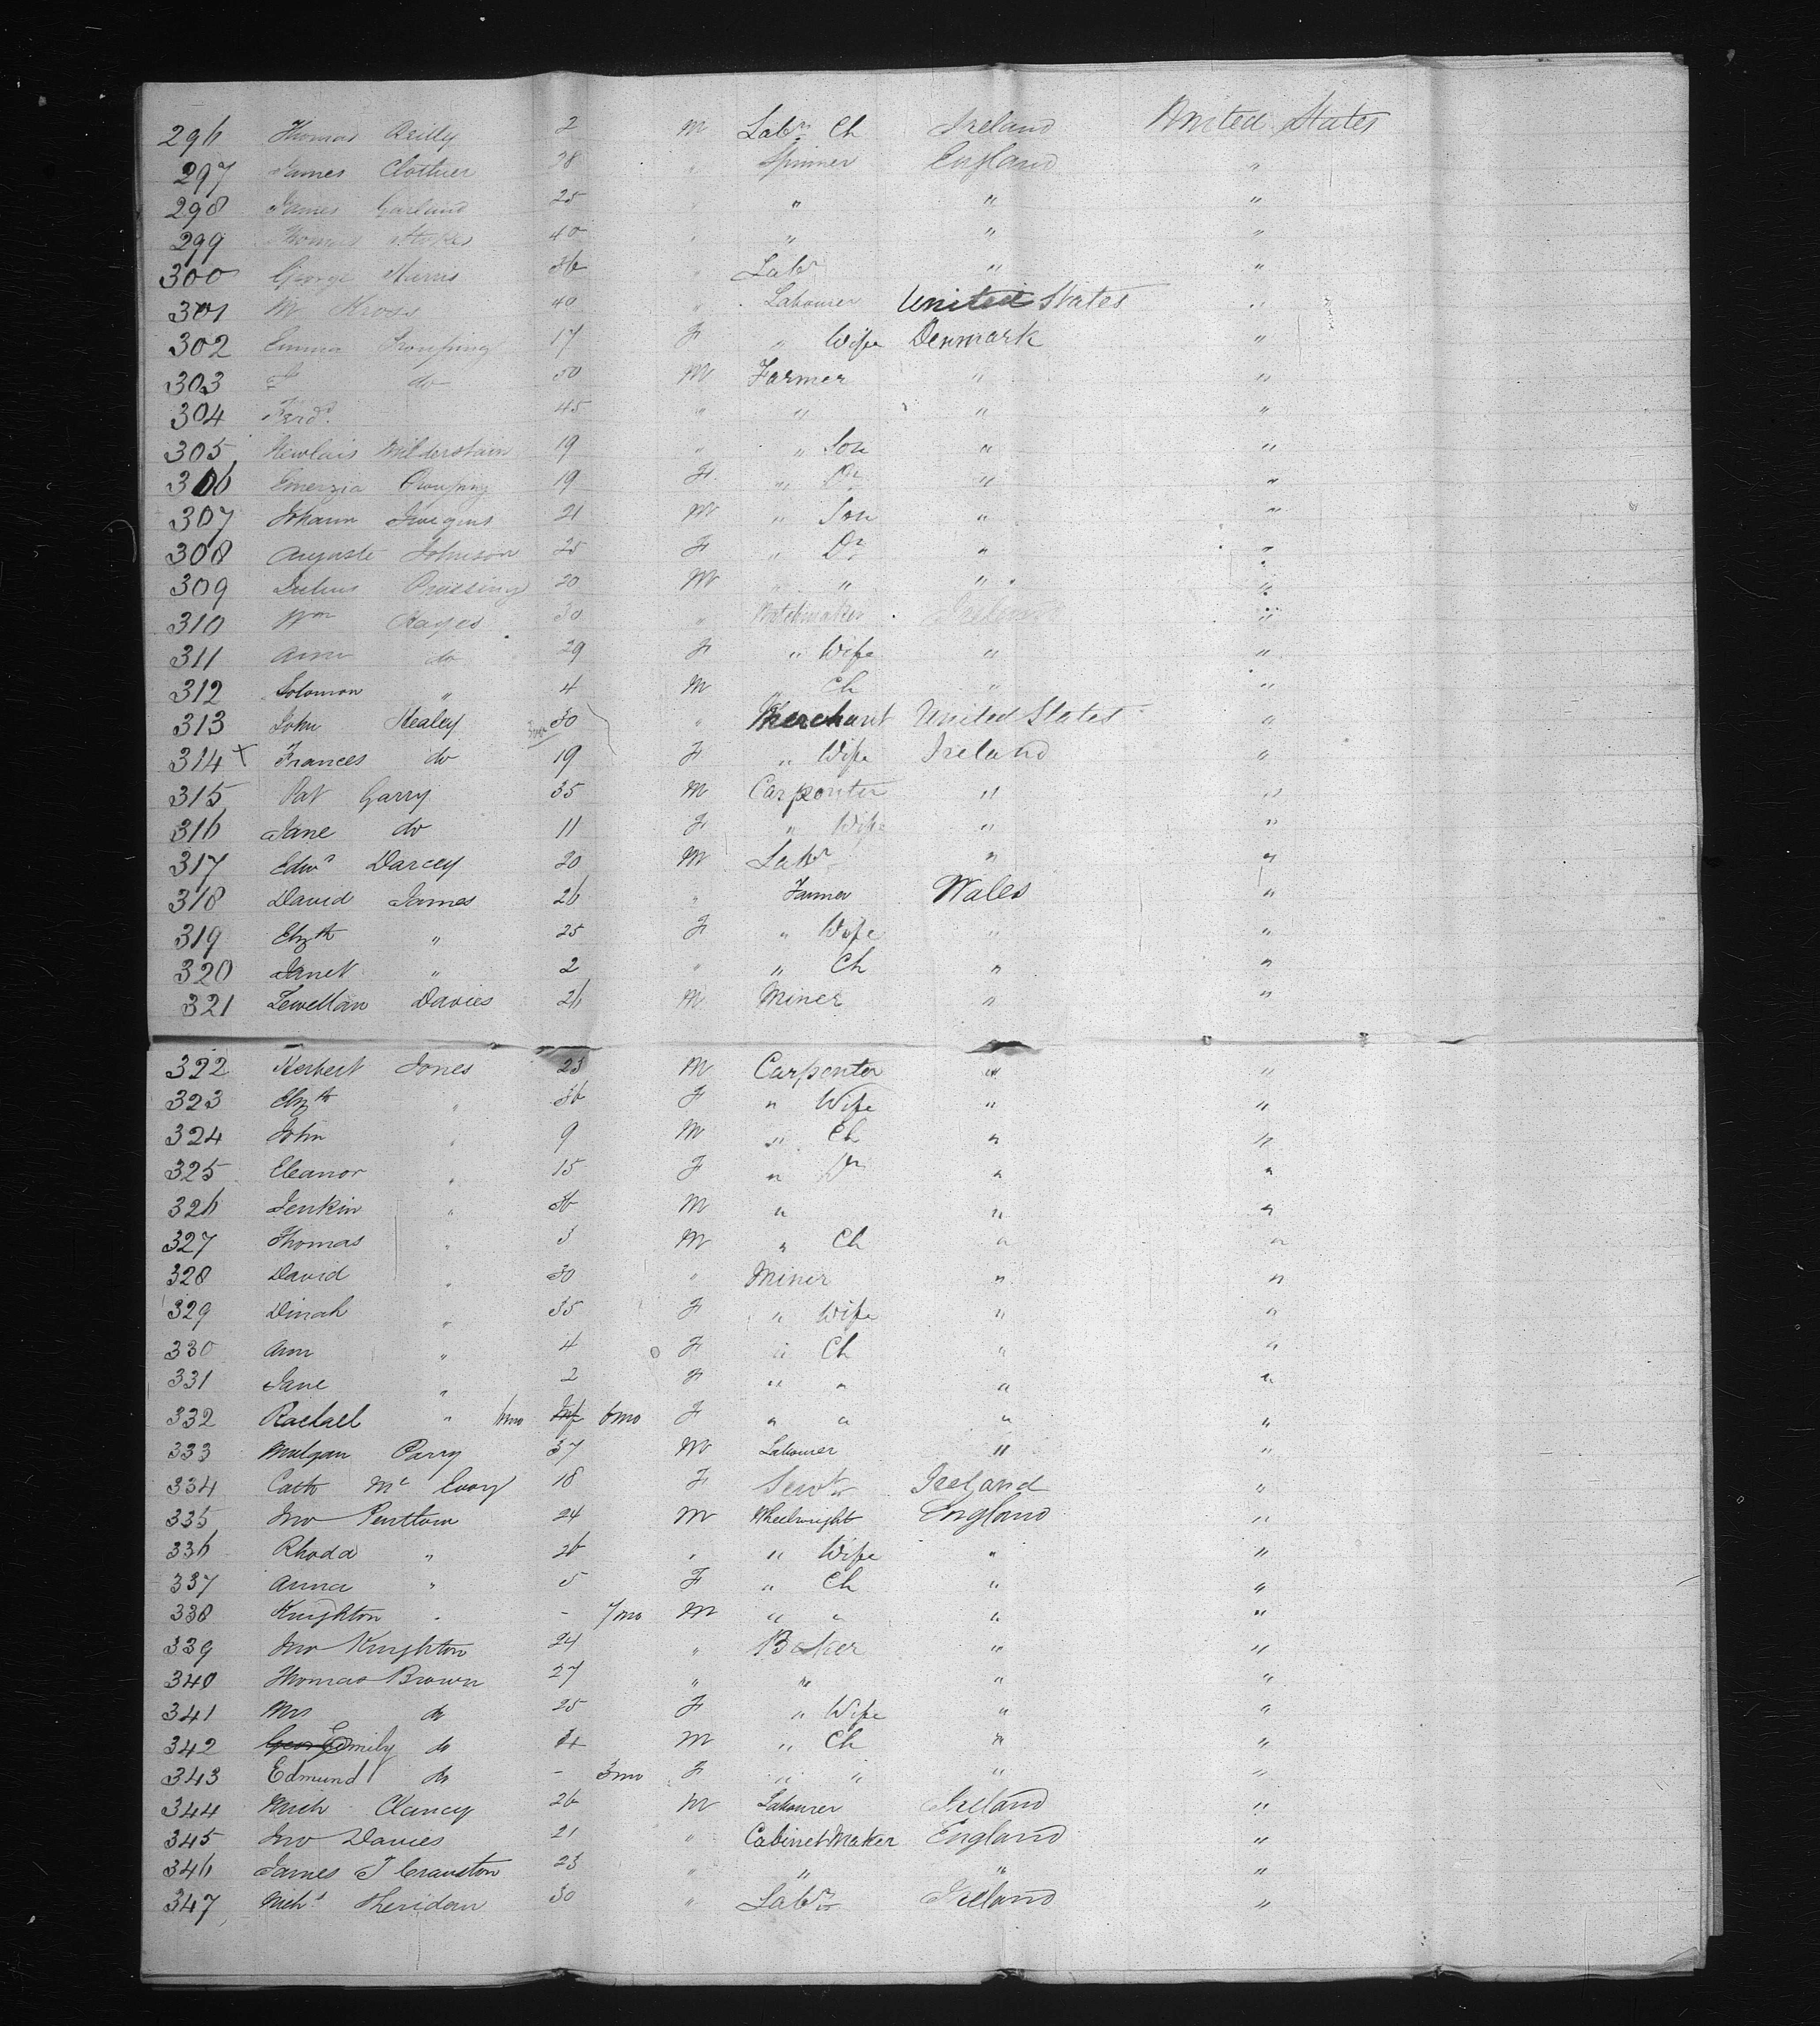 296 Thomas Reilly 2 M Labr Ch Ireland United States
297 James Clothier 38 " Spinner England "
298 James Garland 25 " " " "
299 Thomas Stokes 40 " " " "
300 George Harris 36 " Labr " "
301 M Kross 40 " Labourer United States "
302 Emma 17 F " Wife Denmark "
303 do 50 M Farmer " "
304 Ferdd 45 " " " "
305 19 " " Son " "
306 19 F " Dr " "
307 Johann Jurgens 21 M " Son " "
308 Auguste Johnson 25 F " Dr " "
309 Julius 20 M " " " "
310 Wm Hayes 30 " Watchmaker Ireland "
311 Ann do 29 F " Wife " "
312 Solomon " 4 M " Ch " "
313 John Healey 30 " Merchant United States "
314 x Frances do 19 F " Wife Ireland "
315 Pat Garry 35 M Carpenter " "
316 Jane do 11 F " Wife " "
317 Edwd Darcey 20 M Labr " "
318 David James 26 " Farmer Wales "
319 Elizth " 25 F " Wife " "
320 Janet " 2 " " Ch " "
321 Lewellan Davies 26 M Miner " "
322 Herbert Jones 23 M Carpenter " "
323 Elizth " 36 F " Wife " "
324 John " 9 M " Ch " "
325 Eleanor " 15 F " Dr " "
326 Jenkin " 36 M " " "
327 Thomas " 3 M " Ch " "
328 David " 30 " Miner " "
329 Dinah " 35 F " Wife " "
330 Ann " 4 F " Ch " "
331 Jane " 2 F " " " "
332 Rachael " 6mo Inf 6mo F " " " "
333 Mulgan Parry 37 M Labourer " "
334 Cath Mc Evoy 18 F Servt Ireland "
335 Jno Penttom 24 M Wheelwright England "
336 Rhoda " 26 " " Wife " "
337 Anna " 5 F " Ch " "
338 Knighton " - 7mo M " " " "
339 Jno Knighton 24 " Baker " "
340 Thomas Brown 27 " " " "
341 Mrs do 25 F " Wife " "
342 Geo Emily do 4 M " Ch " "
343 Edmund do - 3mo F " " " "
344 Mich Clancy 26 M Labourer Ireland "
345 Jno Davies 21 " Cabinet Maker England "
346 James T Cranston 23 " " " "
347 Michl Sheridan 30 " Labr Ireland "